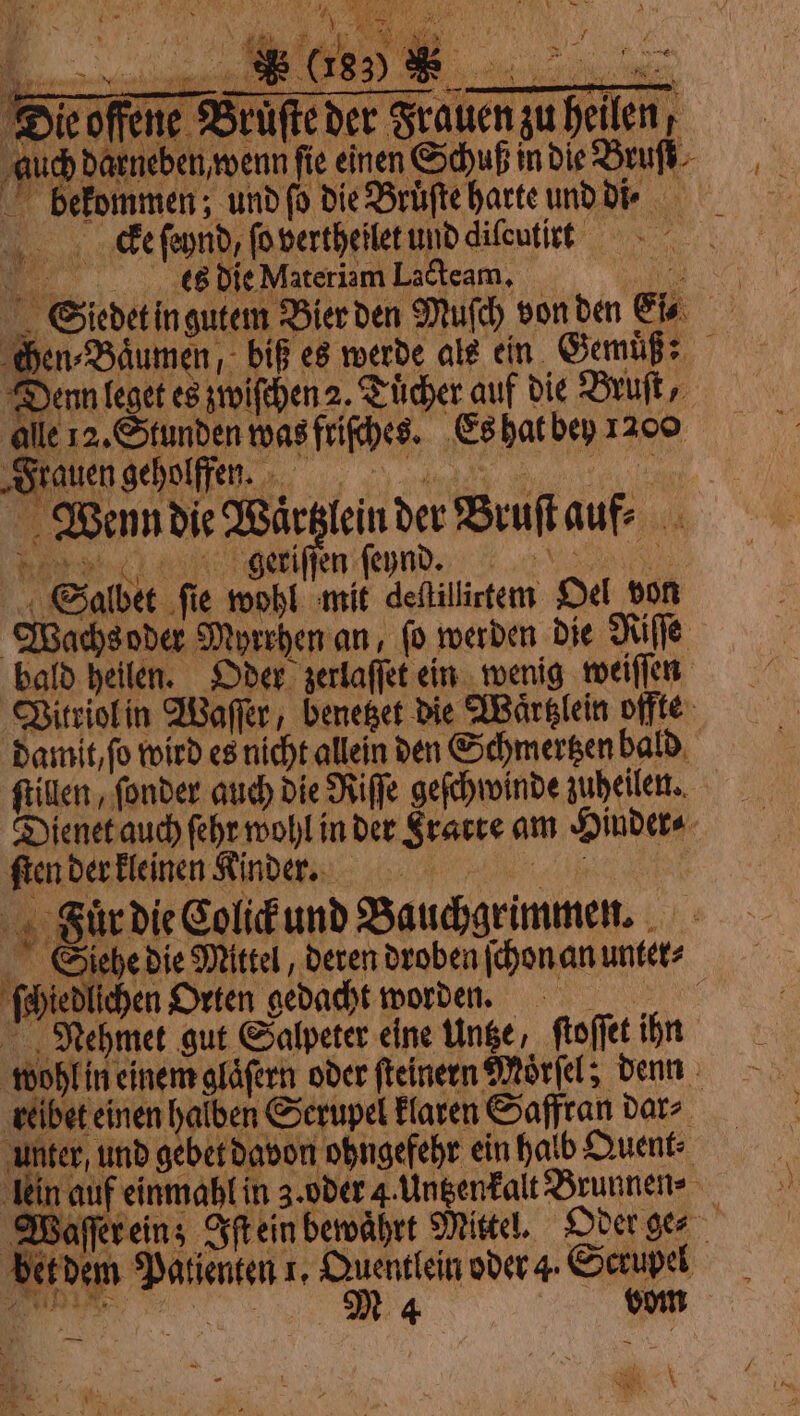 ❋ (183) ❋
Die offene Bruͤſte der Frauen zu heilen,
auch darneben, wenn ſie einen Schuß in die Bruſt
bekommen; und ſo die Bruͤſte harte und di-
cke ſeynd, ſo vertheilet und diſcutirt
es die Materiam Lacteam.
Siedet in gutem Bier den Muſch von den Ei-
chen-Baͤumen, biß es werde als ein Gemuͤß:
Denn leget es zwiſchen 2. Tuͤcher auf die Bruſt,
alle 12. Stunden was friſches. Es hat bey 1200
Frauen geholffen.
Wenn die Waͤrtzlein der Bruſt auf-
geriſſen ſeynd.
Salbet ſie wohl mit deſtillirtem Oel von
Wachs oder Myrrhen an, ſo werden die Riſſe
bald heilen. Oder zerlaſſet ein wenig weiſſen
Vitriol in Waſſer, benetzet die Waͤrtzlein offte
damit, ſo wird es nicht allein den Schmertzen bald
ſtillen, ſonder auch die Riſſe geſchwinde zuheilen.
Dienet auch ſehr wohl in der Fratte am Hinder-
ſten der kleinen Kinder.
Fuͤr die Colick und Bauchgrimmen.
Siehe die Mittel, deren droben ſchon an unter-
ſchiedlichen Orten gedacht worden.
Nehmet gut Salpeter eine Untze, ſtoſſet ihn
wohl in einem glaͤſern oder ſteinern Moͤrſel; denn
reibet einen halben Scrupel klaren Saffran dar-
unter, und gebet davon ohngefehr ein halb Quent-
lein auf einmahl in 3. oder 4. Untzen kalt Brunnen-
Waſſer ein; Iſt ein bewaͤhrt Mittel. Oder ge-
bet dem Patienten 1. Quentlein oder 4. Scrupel
M 4 vom